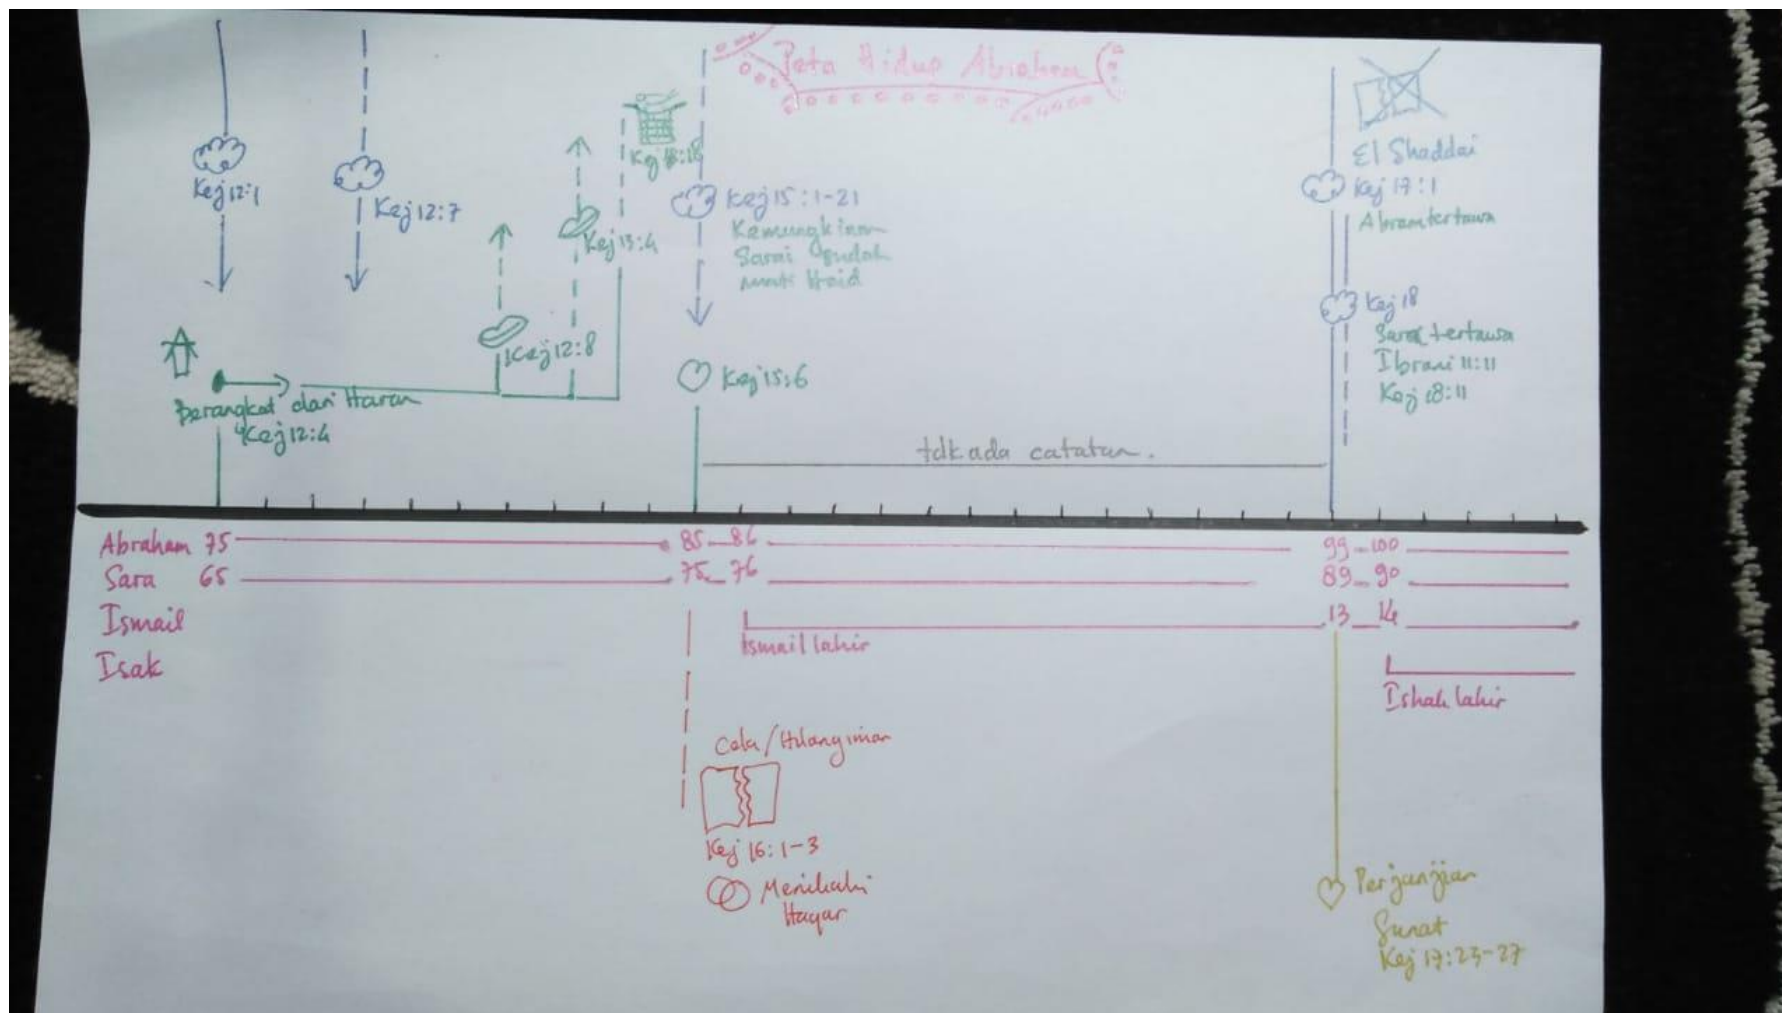 Peta Hidup Abraham
Kej 12:1
Kej 12:7
Kej 12:8
Kej 13:4
Kej 13:18
Kej 15:1-21
Kemungkinan
Sarai sudah
mati Haid
Kej 15:6
El Shaddai
Kej 17:1
Abram tertawa
Kej 18
Sara tertawa
Ibrani 11:11
Kej 18:11
Berangkat dari Haran
Kej 12:4
tdk ada catatan.
Abraham 75 85 86 99 100
Sara 65 75 76 89 90
Ismail 13 14
Ismail lahir
Isak
Ishak lahir
/Hilang iman
Kej 16:1-3
Menikahi
Hagar
Perjanjian
Sunat
Kej 17:23-27